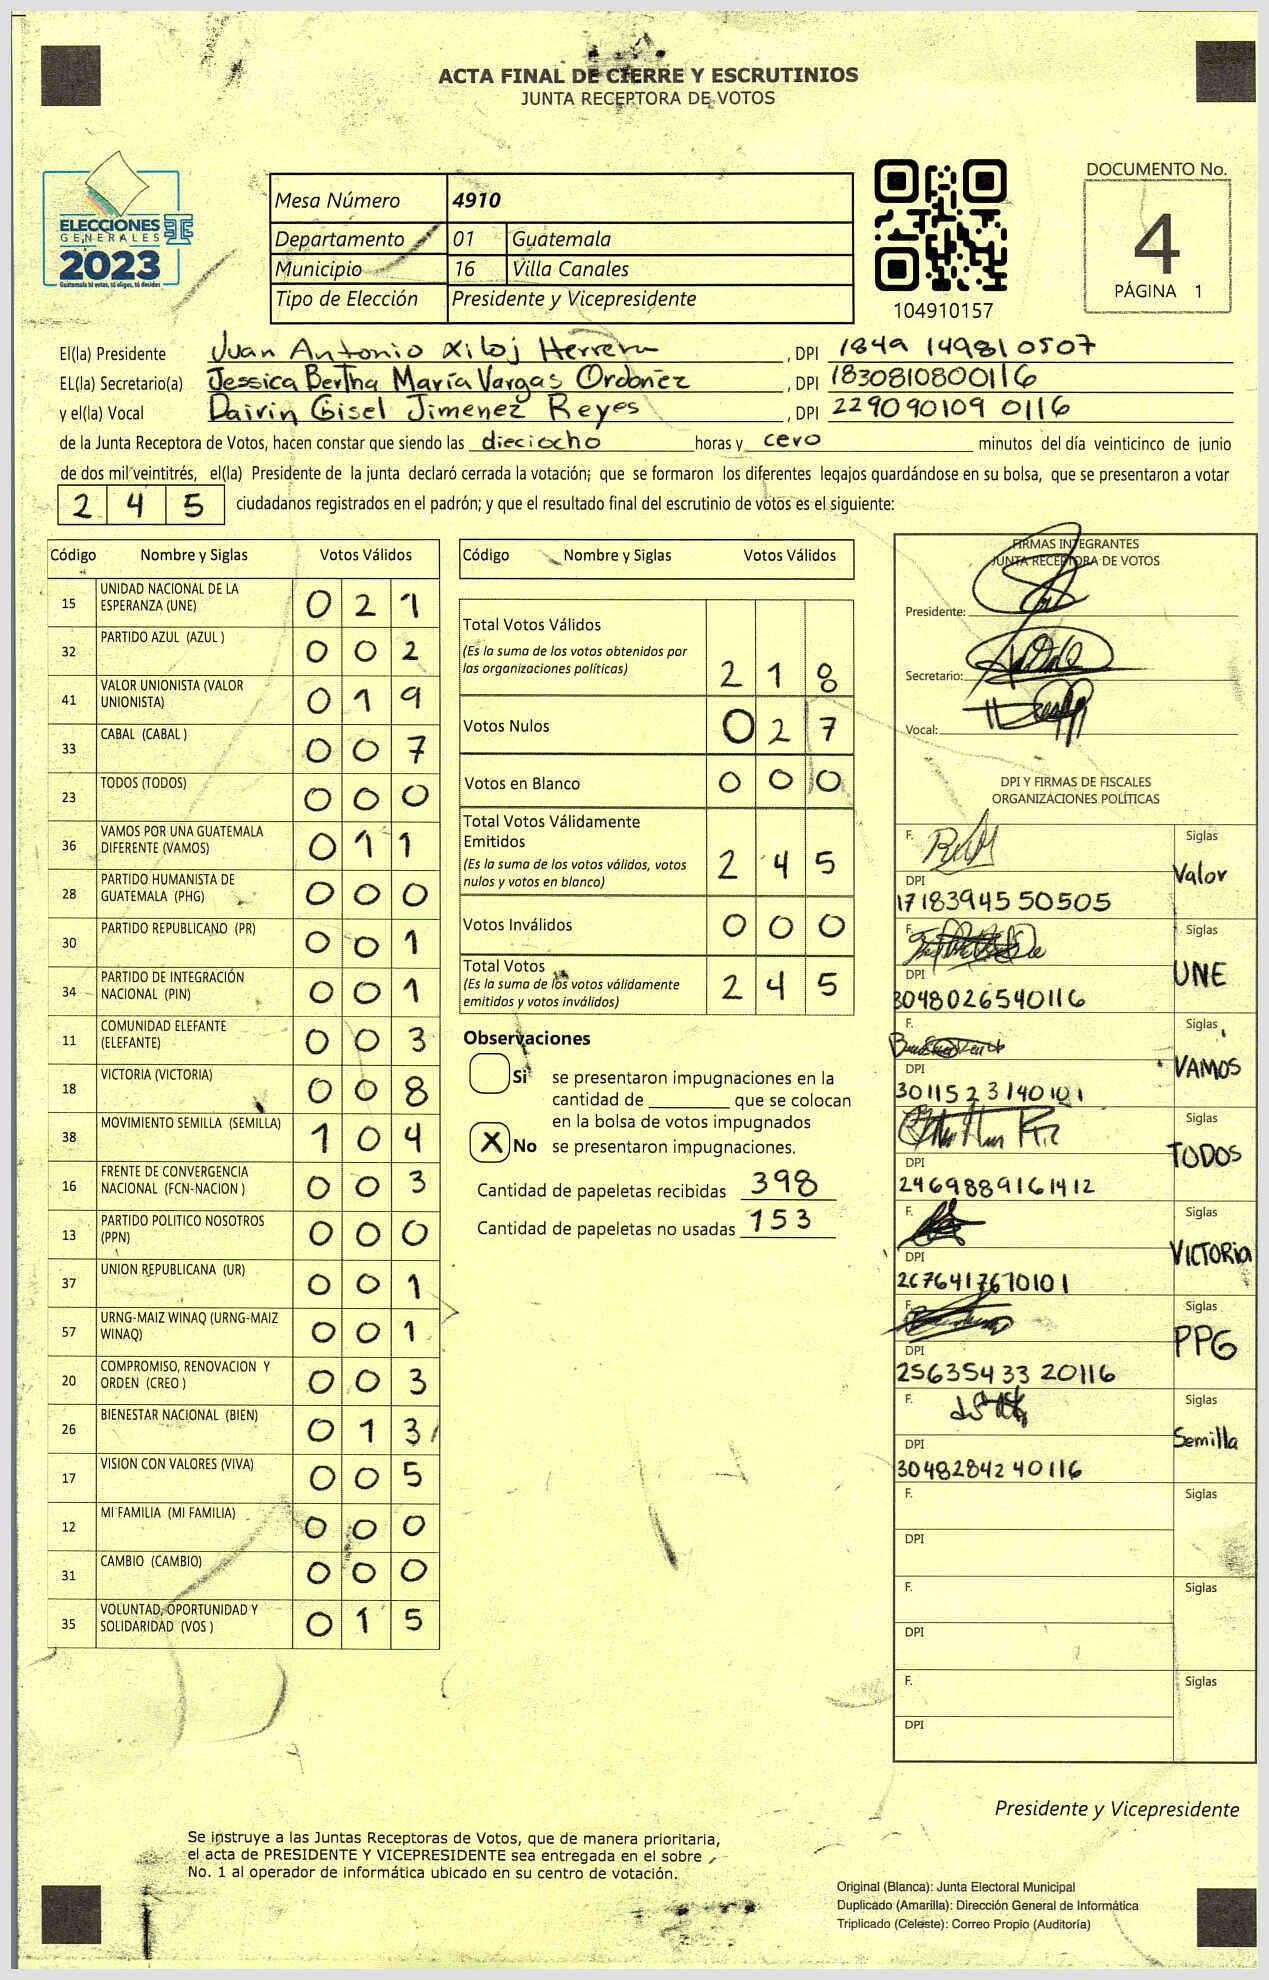 ACTA FINAL DE CIERRE Y ESCRUTINIOS
JUNTA RECEPTORA DE VOTOS
ELECCIONES
GENERALES
2023
Guatemala tú votas, tú eliges, tú decides
Mesa Número 4910
Departamento 01 Guatemala
Municipio 16 Villa Canales
Tipo de Elección Presidente y Vicepresidente
104910157
DOCUMENTO No.
4
PÁGINA 1
El(la) Presidente Juan Antonio Xiloj Herrera, DPI 1849 149810507
EL(la) Secretario(a) Jessica Bertha María Vargas Ordoñez, DPI 1830810800116
y el(la) Vocal Dairin Gisel Jimenez Reyes, DPI 229090109 0116
de la Junta Receptora de Votos, hacen constar que siendo las dieciocho horas y cero minutos del día veinticinco de junio
de dos mil veintitrés, el(la) Presidente de la junta declaró cerrada la votación; que se formaron los diferentes legajos guardándose en su bolsa, que se presentaron a votar
2 4 5 ciudadanos registrados en el padrón; y que el resultado final del escrutinio de votos es el siguiente:
Código Nombre y Siglas Votos Válidos
15 UNIDAD NACIONAL DE LA ESPERANZA (UNE) 0 2 1
32 PARTIDO AZUL (AZUL ) 0 0 2
41 VALOR UNIONISTA (VALOR UNIONISTA) 0 1 9
33 CABAL (CABAL ) 0 0 7
23 TODOS (TODOS) 0 0 0
36 VAMOS POR UNA GUATEMALA DIFERENTE (VAMOS) 0 1 1
28 PARTIDO HUMANISTA DE GUATEMALA (PHG) 0 0 0
30 PARTIDO REPUBLICANO (PR) 0 0 1
34 PARTIDO DE INTEGRACIÓN NACIONAL (PIN) 0 0 1
11 COMUNIDAD ELEFANTE (ELEFANTE) 0 0 3
18 VICTORIA (VICTORIA) 0 0 8
38 MOVIMIENTO SEMILLA (SEMILLA) 1 0 4
16 FRENTE DE CONVERGENCIA NACIONAL (FCN-NACION ) 0 0 3
13 PARTIDO POLITICO NOSOTROS (PPN) 0 0 0
37 UNION REPUBLICANA (UR) 0 0 1
57 URNG-MAIZ WINAQ (URNG-MAIZ WINAQ) 0 0 1
20 COMPROMISO, RENOVACION Y ORDEN (CREO ) 0 0 3
26 BIENESTAR NACIONAL (BIEN) 0 1 3
17 VISION CON VALORES (VIVA) 0 0 5
12 MI FAMILIA (MI FAMILIA) 0 0 0
31 CAMBIO (CAMBIO) 0 0 0
35 VOLUNTAD, OPORTUNIDAD Y SOLIDARIDAD (VOS ) 0 1 5
Código Nombre y Siglas Votos Válidos
Total Votos Válidos 2 1 8
(Es la suma de los votos obtenidos por
las organizaciones políticas)
Votos Nulos 0 2 7
Votos en Blanco 0 0 0
Total Votos Válidamente
Emitidos 2 4 5
(Es la suma de los votos válidos, votos
nulos y votos en blanco)
Votos Inválidos 0 0 0
Total Votos 2 4 5
(Es la suma de los votos válidamente
emitidos y votos inválidos)
Observaciones
Si se presentaron impugnaciones en la
cantidad de que se colocan
en la bolsa de votos impugnados
X No se presentaron impugnaciones.
Cantidad de papeletas recibidas 398
Cantidad de papeletas no usadas 153
FIRMAS INTEGRANTES
JUNTA RECEPTORA DE VOTOS
Presidente:
Secretario:
Vocal:
DPI Y FIRMAS DE FISCALES
ORGANIZACIONES POLÍTICAS
F. Siglas
Valor
DPI
1718394550505
F. Siglas
UNE
DPI
3048026540116
F. Siglas
VAMOS
DPI
3011523140101
F. Siglas
TODOS
DPI
2469889161412
F. Siglas
VICTORIA
DPI
2676417670101
F. Siglas
PPG
DPI
2563543320116
F. Siglas
Semilla
DPI
3048284240116
F. Siglas
DPI
F. Siglas
DPI
F. Siglas
DPI
Presidente y Vicepresidente
Se instruye a las Juntas Receptoras de Votos, que de manera prioritaria,
el acta de PRESIDENTE Y VICEPRESIDENTE sea entregada en el sobre
No. 1 al operador de informática ubicado en su centro de votación.
Original (Blanca): Junta Electoral Municipal
Duplicado (Amarilla): Dirección General de Informática
Triplicado (Celeste): Correo Propio (Auditoría)